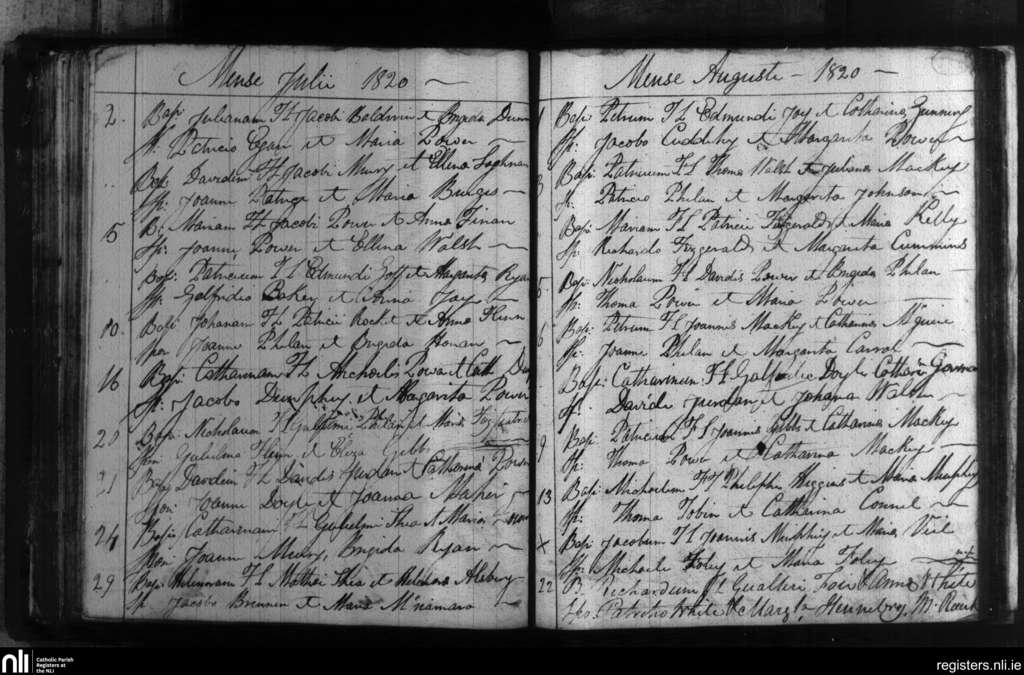 Mense Julii 1820
2. Bapi Julianam FL Jacobi Baldwin et Brigida
Sp: Patricio Egan et Maria Power
Bap: Davidem FL Jacobi Murry et Ellena
Sp: Joanne et Maria Burges
5 B: Mariam FL Jacobi Power et Anna Finan
Sp: Joanne Power et Ellena Walsh
Bapi: Patricium FL Edmundi Goff et Margarita Ryan
Sp: Galfrido Bakey et Anna Jay
10. Bapi Johanam FL Patricii Rocket et Anna Flinn
Spon Joanne Phelan et Brigida Honan
16 Bapi: Catharinam FL Michaelis Power et Cath
Sp: Jacobo Dunphy et Margarita Power
20 Bapi Nicholaum FL Gulielmi Phelan et Maria
Spon: Gulielmo Flynn et Eliza Gibbs
21 Bapi Davidem FL Davidis Jurdan et Catharina Power
Spon: Joanne Doyle et Joanna
24 Bapi: Catharinam FL Gulielmi Shea et Maria
Spon Joanne Murry, Brigida Ryan
29 Bapi Helenam FL Mathei Shea et Helena
Sp Jacobo Brennen et Maria McNamara
Mense Augusti - 1820
1 Bapi Petrum FL Edmundi Joy et Catharina
Sp: Jacobo Cuddihy et Margarita Power
3 Bapi: Patricium FL Thoma Walsh et Juliana Mackey
Sp: Patricio Phelan et Margarita Johnson
Bapi: Mariam FL Patricii Fitzgerald et Maria Kelly
Sp: Richardo Fitzgerald et Margarita Cummins
5 Bapi Nicholaum FL Davidis Power et Brigida Phelan
Sp: Thoma Power et Maria Power
6 Bapi: Petrum FL Joannis Mackey et Catharina
Sp: Joanne Phelan et Margarita Carrol
Bapi: Catharinam FL Galfridi Doyle Cathar:
Sp: Davide Jurdan et Johanna Walsh
9 Bapi: Patricium FL Joannis Gibbs et Catharina Mackey
Sp: Thoma Power et Catharina Mackey
13 Bapi: Michaelem FL Philippi Higgins et Maria Murphy
Sp: Thoma Tobin et Catharina Connel
x Bapi: Jacobum FL Joannis et Maria
Sp: Michaele Foley et Maria Foley
22 B. Richardum FL Gualteri et Anna White
Spo: Patritio White & Marg.ta Hennebry,
nli
Catholic Parish
Registers at
the NLI
registers.nli.ie